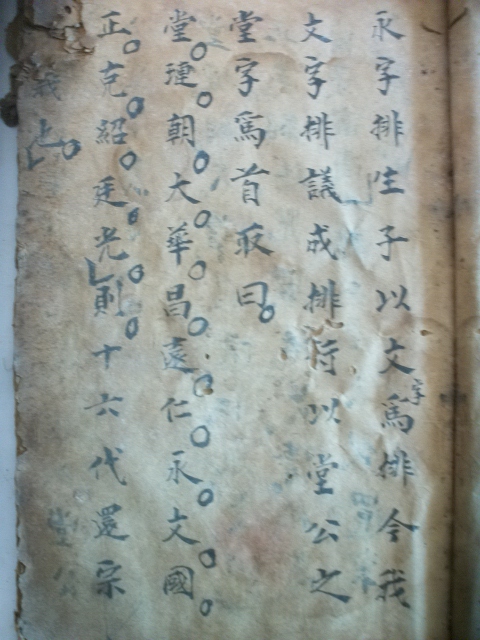 永字排生子以文字爲排今我
文字排議成排行以堂公之
堂字爲首取曰
堂璉朝大華昌遠仁永文國
正克紹廷光則十六代還宗
上